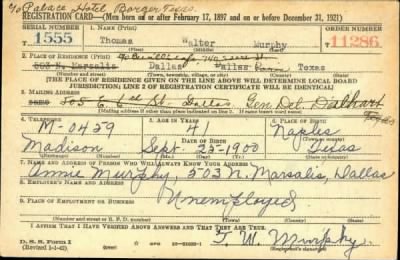 c/o Palace Hotel Borger Texas.
REGISTRATION CARD—(Men born on or after February 17, 1897 and on or before December 31, 1921)
SERIAL NUMBER 1. NAME (Print) ORDER NUMBER
1555 Thomas Walter Murphy 11286
(First) (Middle) (Last)
2. PLACE OF RESIDENCE (Print)
503 N. Marsalis Dallas Dallas Texas
(Number and street) (Town, township, village, or city) (County) (State)
[THE PLACE OF RESIDENCE GIVEN ON THE LINE ABOVE WILL DETERMINE LOCAL BOARD
JURISDICTION; LINE 2 OF REGISTRATION CERTIFICATE WILL BE IDENTICAL]
3. MAILING ADDRESS
505 E. 6th St. Dallas, Gen Del. Dalhart Texas
4. TELEPHONE 5. AGE IN YEARS 6. PLACE OF BIRTH
M-0459 41 Naples
DATE OF BIRTH (Town or county)
Madison Sept. 25-1900 Texas
(Exchange) (Number) (Mo.) (Day) (Yr.) (State or country)
7. NAME AND ADDRESS OF PERSON WHO WILL ALWAYS KNOW YOUR ADDRESS
Annie Murphy, 503 N. Marsalis, Dallas
8. EMPLOYER'S NAME AND ADDRESS
Unemployed
9. PLACE OF EMPLOYMENT OR BUSINESS
(Number and street or R. F. D. number) (Town) (County) (State)
I AFFIRM THAT I HAVE VERIFIED ABOVE ANSWERS AND THAT THEY ARE TRUE.
D. S. S. Form 1
(Revised 1-1-42) (over) T. W. Murphy
(Registrant's signature)